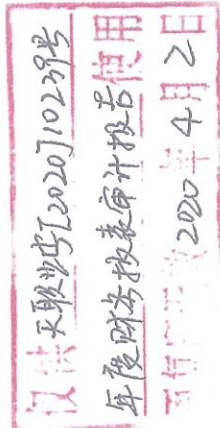 仅供天职业字[2020]10239号
年度财务报表审计报告使用
2020年4月2日